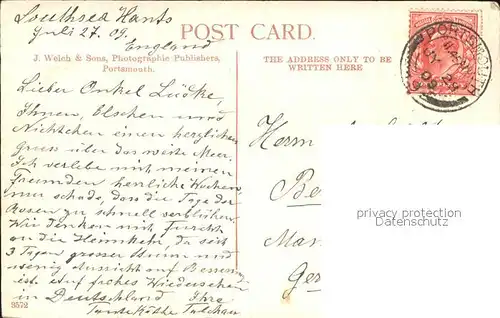 Southsea Hants
Juli 27. 09.
England
POST CARD.
J. Welch & Sons, Photographic Publishers,
Portsmouth.
THE ADDRESS ONLY TO BE
WRITTEN HERE
PORTSMOUTH
Lieber Onkel Lüdke,
Ihnen, und
Nichtchen einen herzlichen
Gruss über das weite Meer.
Ich verlebe mit meinen
Freunden herrliche Wochen,
nur schade, dass die Tage der
Rosen zu schnell verblühen.
Wir denken mit Furcht
an die Heimkehr, da seit
3 Tagen grosser Sturm und
wenig Aussicht auf Besserung
ist. Auf frohes Wiedersehen
in Deutschland Ihre
Tante Käthe
Herrn
Be
Ger
privacy protection
Datenschutz
9572